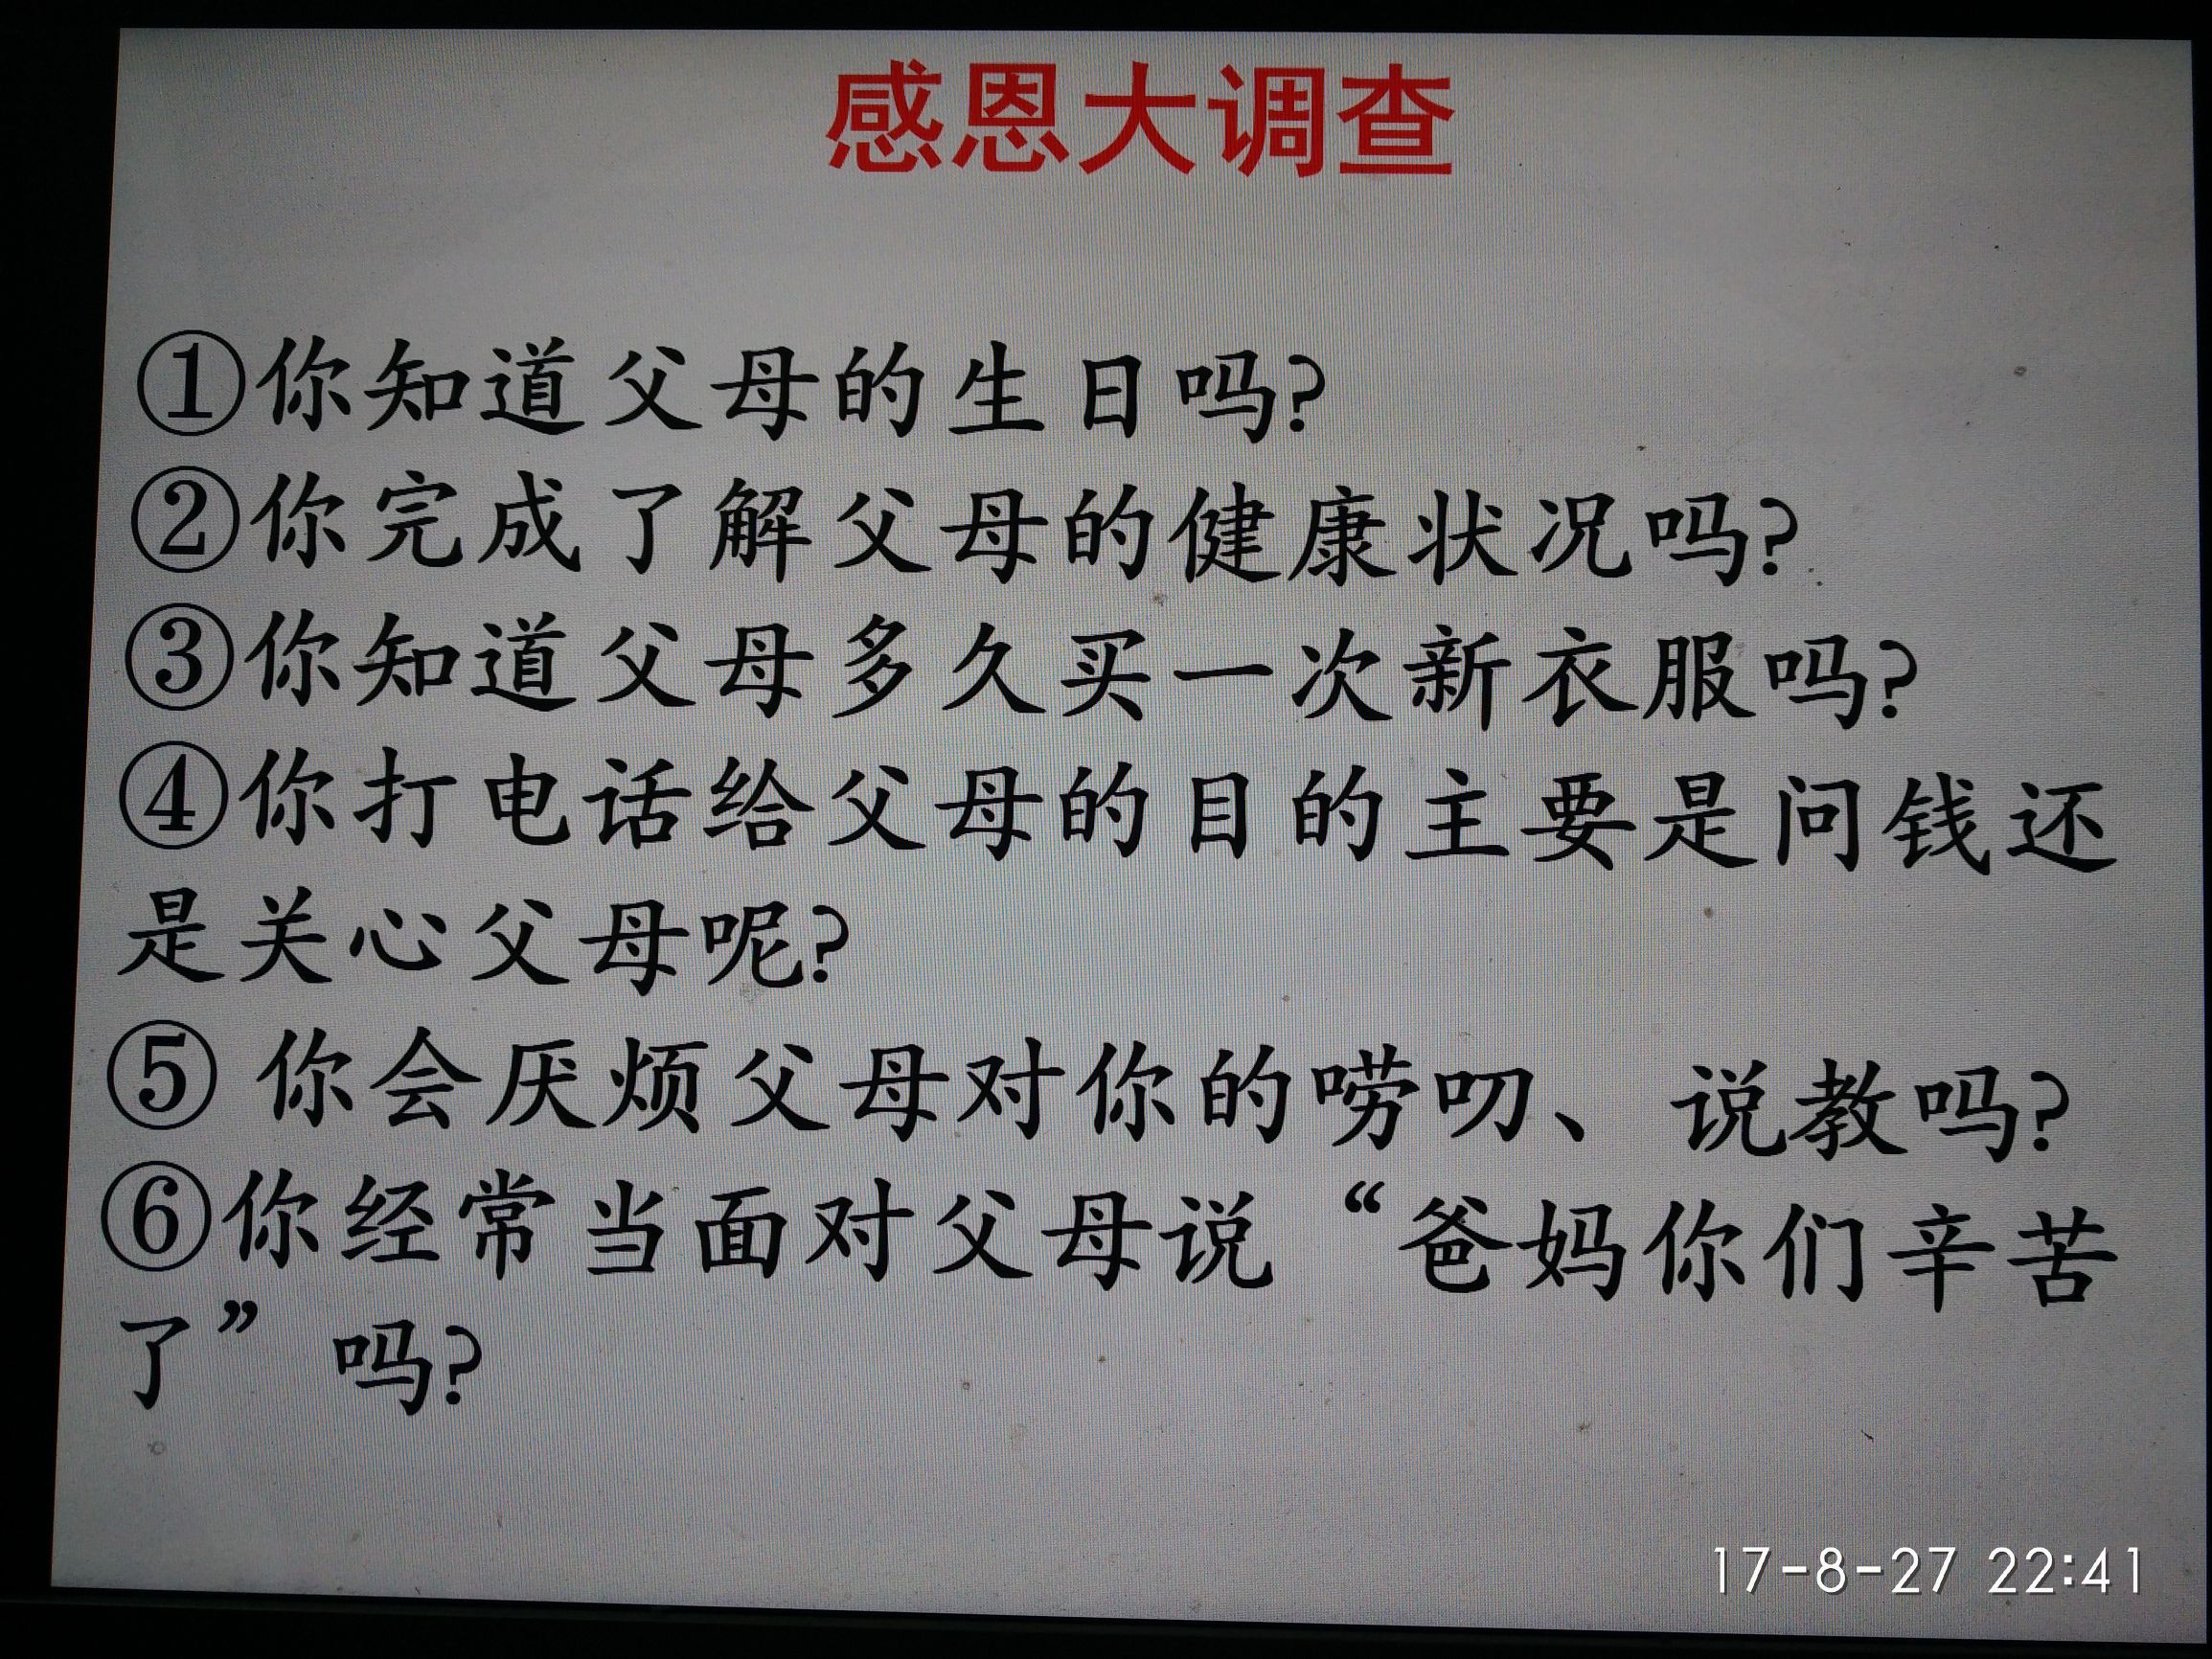 感恩大调查
①你知道父母的生日吗?
②你完成了解父母的健康状况吗?
③你知道父母多久买一次新衣服吗?
④你打电话给父母的目的主要是问钱还
是关心父母呢?
⑤ 你会厌烦父母对你的唠叨、说教吗?
⑥你经常当面对父母说“爸妈你们辛苦
了”吗?
17-8-27 22:41